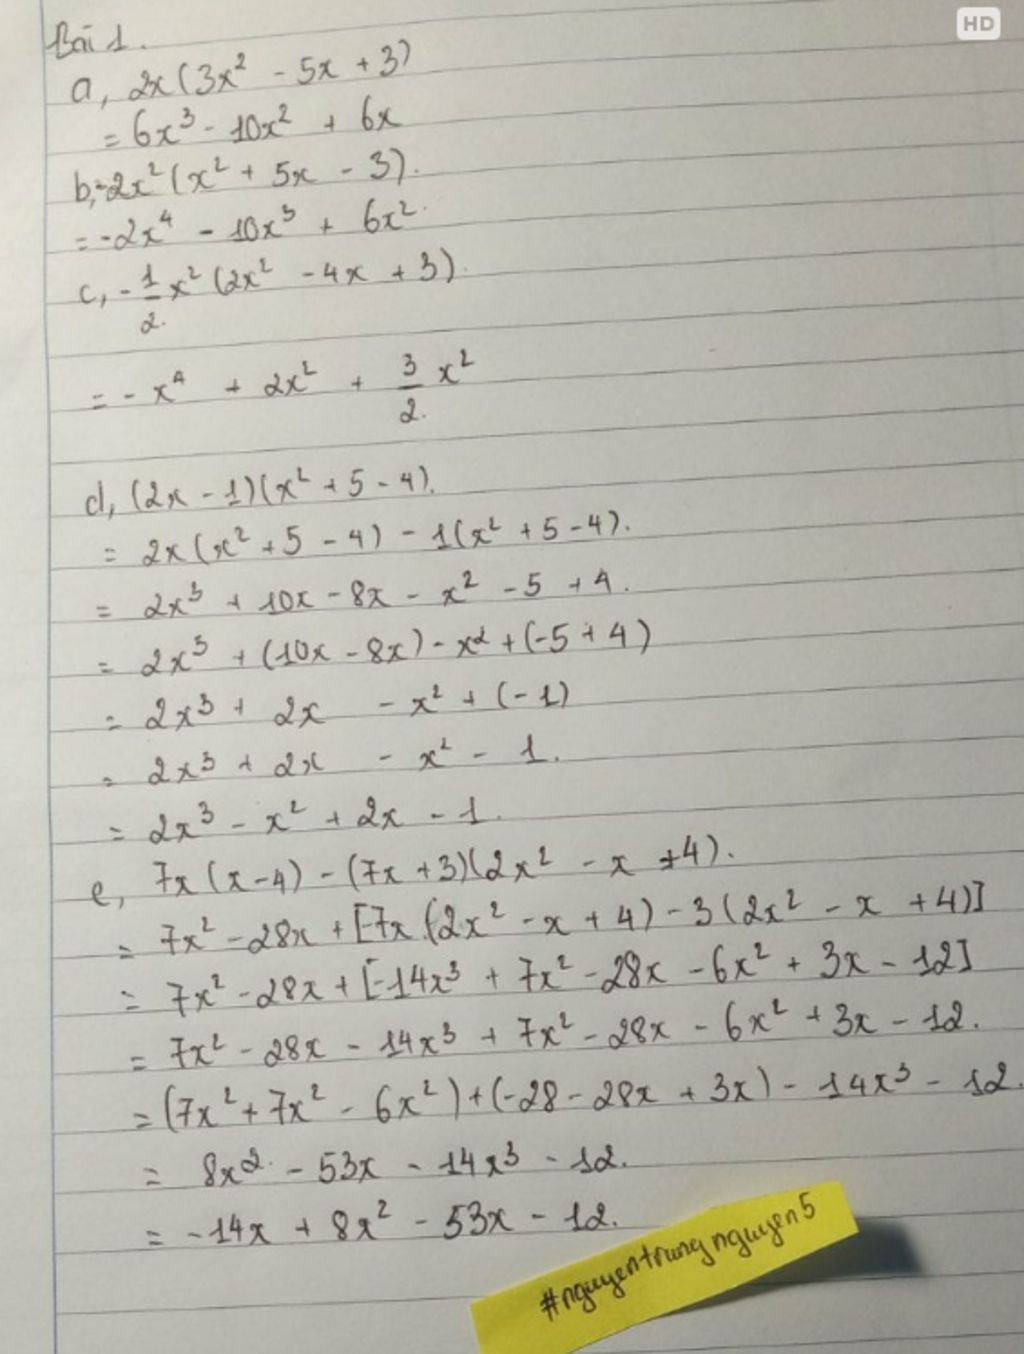 HD
Bài 1.
a, 2x(3x² - 5x + 3)
= 6x³ - 10x² + 6x
b, -2x²(x² + 5x - 3).
= -2x⁴ - 10x³ + 6x².
c, -1/2 x²(2x² - 4x + 3).
= - x⁴ + 2x² + 3/2 x²
d, (2x - 1)(x² + 5 - 4).
= 2x(x² + 5 - 4) - 1(x² + 5 - 4).
= 2x³ + 10x - 8x - x² - 5 + 4.
= 2x³ + (10x - 8x) - x² + (-5 + 4)
= 2x³ + 2x - x² + (-1)
= 2x³ + 2x - x² - 1.
= 2x³ - x² + 2x - 1.
e, 7x(x-4) - (7x + 3)(2x² - x + 4).
= 7x² - 28x + [-7x(2x² - x + 4) - 3(2x² - x + 4)]
= 7x² - 28x + [-14x³ + 7x² - 28x - 6x² + 3x - 12]
= 7x² - 28x - 14x³ + 7x² - 28x - 6x² + 3x - 12.
= (7x² + 7x² - 6x²) + (-28 - 28x + 3x) - 14x³ - 12.
= 8x² - 53x - 14x³ - 12.
= -14x + 8x² - 53x - 12.
#nguyentrungnguyen5